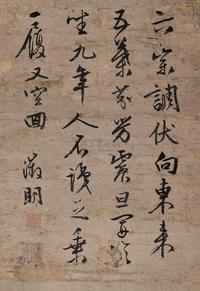 六宗調伏向東來
五葉芬芳震旦開
坐九年人不識
一履又空回
徵明